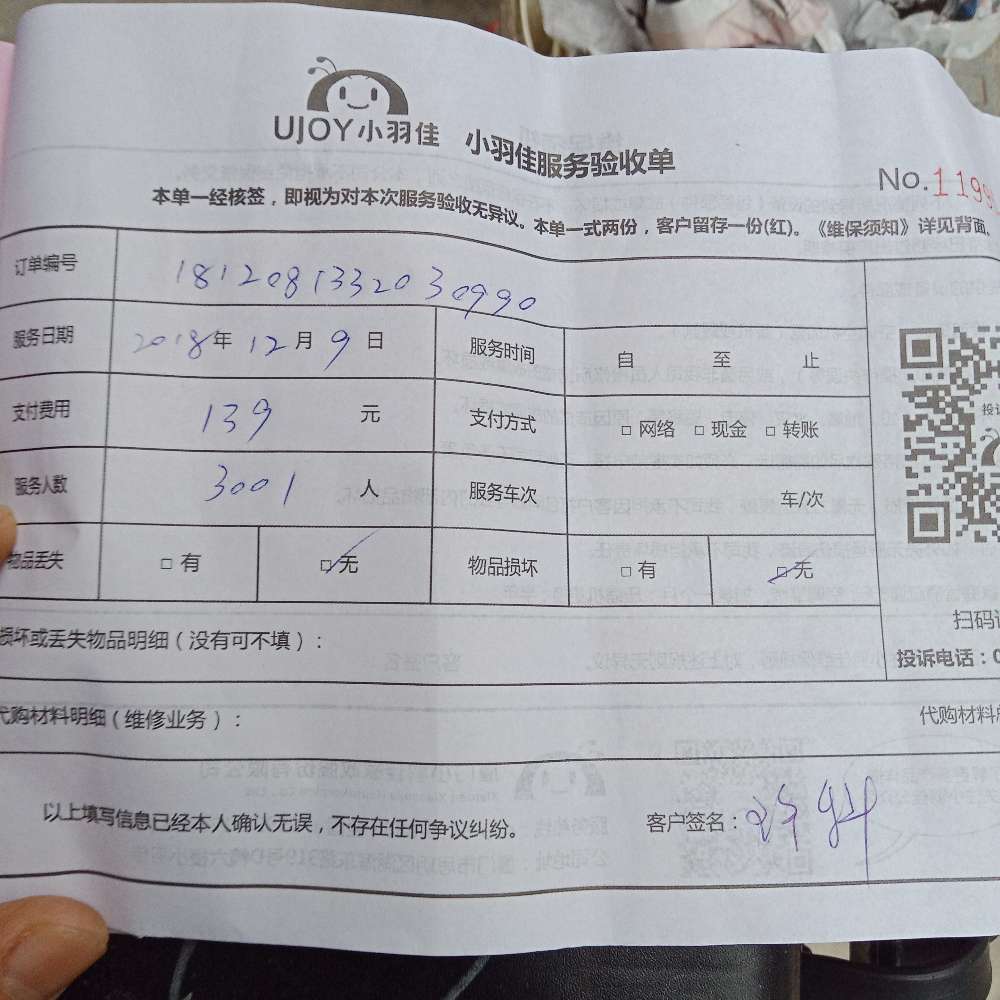 UJOY小羽佳 小羽佳服务验收单
No.1199
本单一经核签，即视为对本次服务验收无异议。本单一式两份，客户留存一份(红)。《维保须知》详见背面。
订单编号 1812081332030990
服务日期 2018年12月9日 服务时间 自 至 止
支付费用 139 元 支付方式 □网络 □现金 □转账
服务人数 3001 人 服务车次 车/次
物品丢失 □有 □无 物品损坏 □有 □无
投诉
扫码
损坏或丢失物品明细（没有可不填）：
投诉电话：0
代购材料明细（维修业务）：
代购材料
以上填写信息已经本人确认无误，不存在任何争议纠纷。 客户签名：